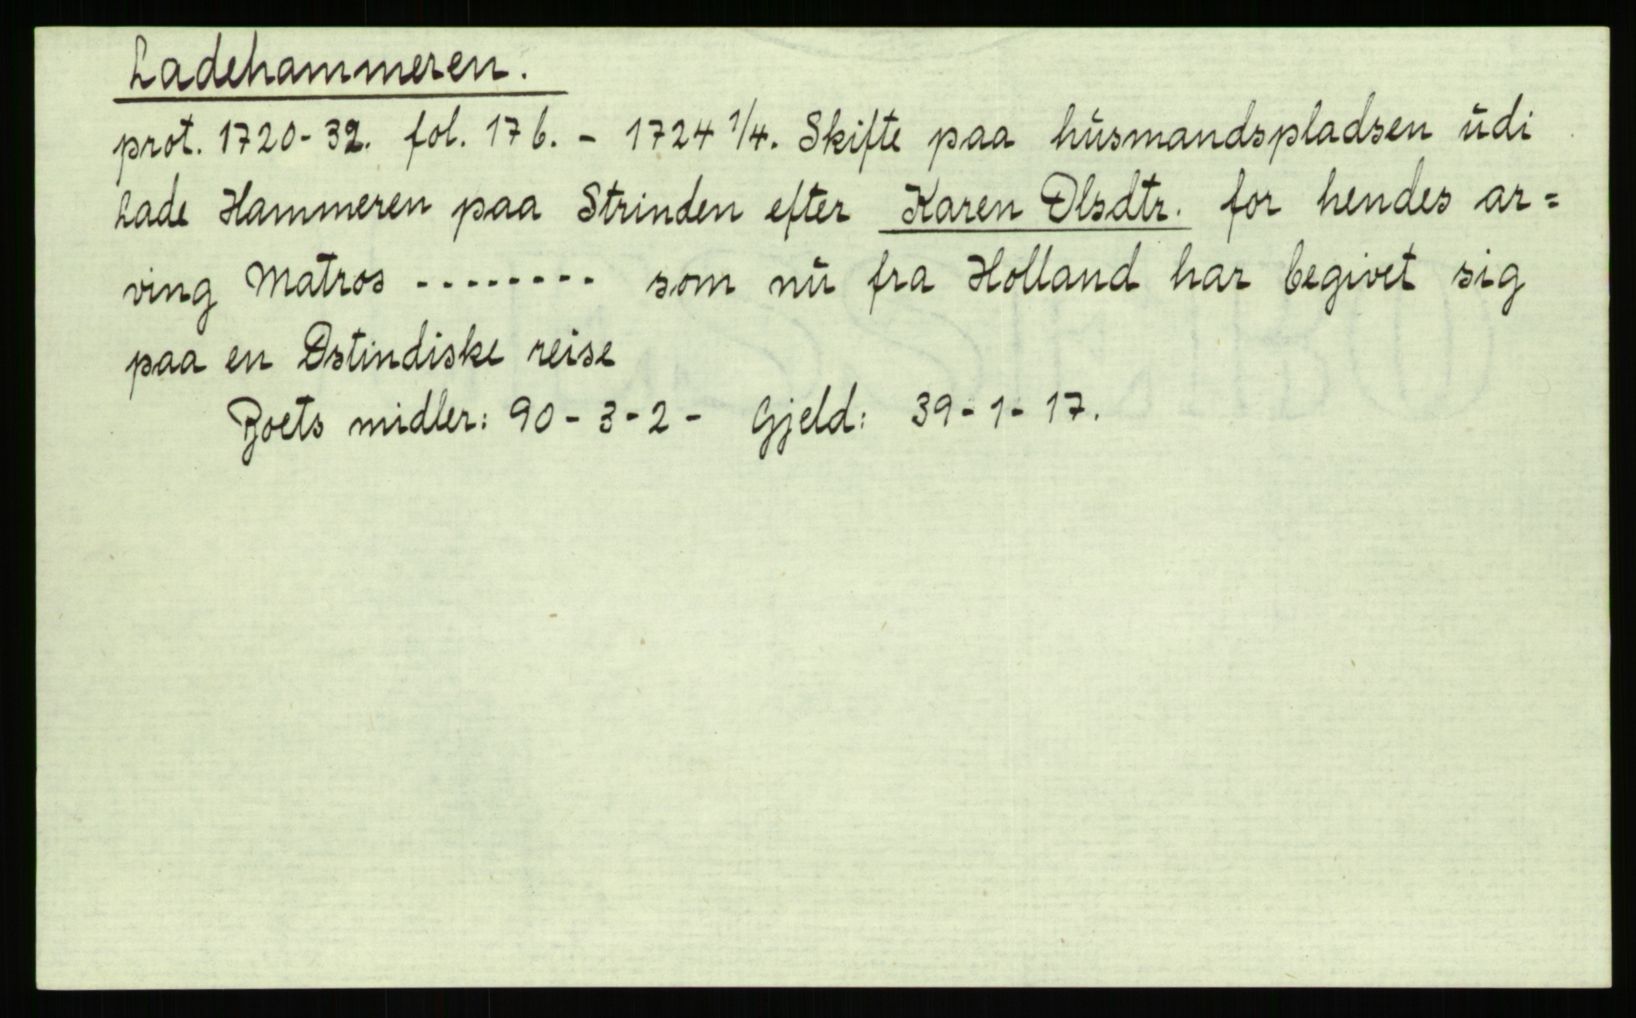 Ladehammeren.
prot. 1720-32. fol. 176. - 1724 1/4. Skifte paa hŭsmandspladsen ŭdi
Lade Hammeren paa Strinden efter Karen Olsdtr. for hendes ar=
ving Matros -------- som nŭ fra Holland har begivet sig
paa en Ostindiske reise
Boets midler: 90-3-2- Gjeld: 39-1-17.